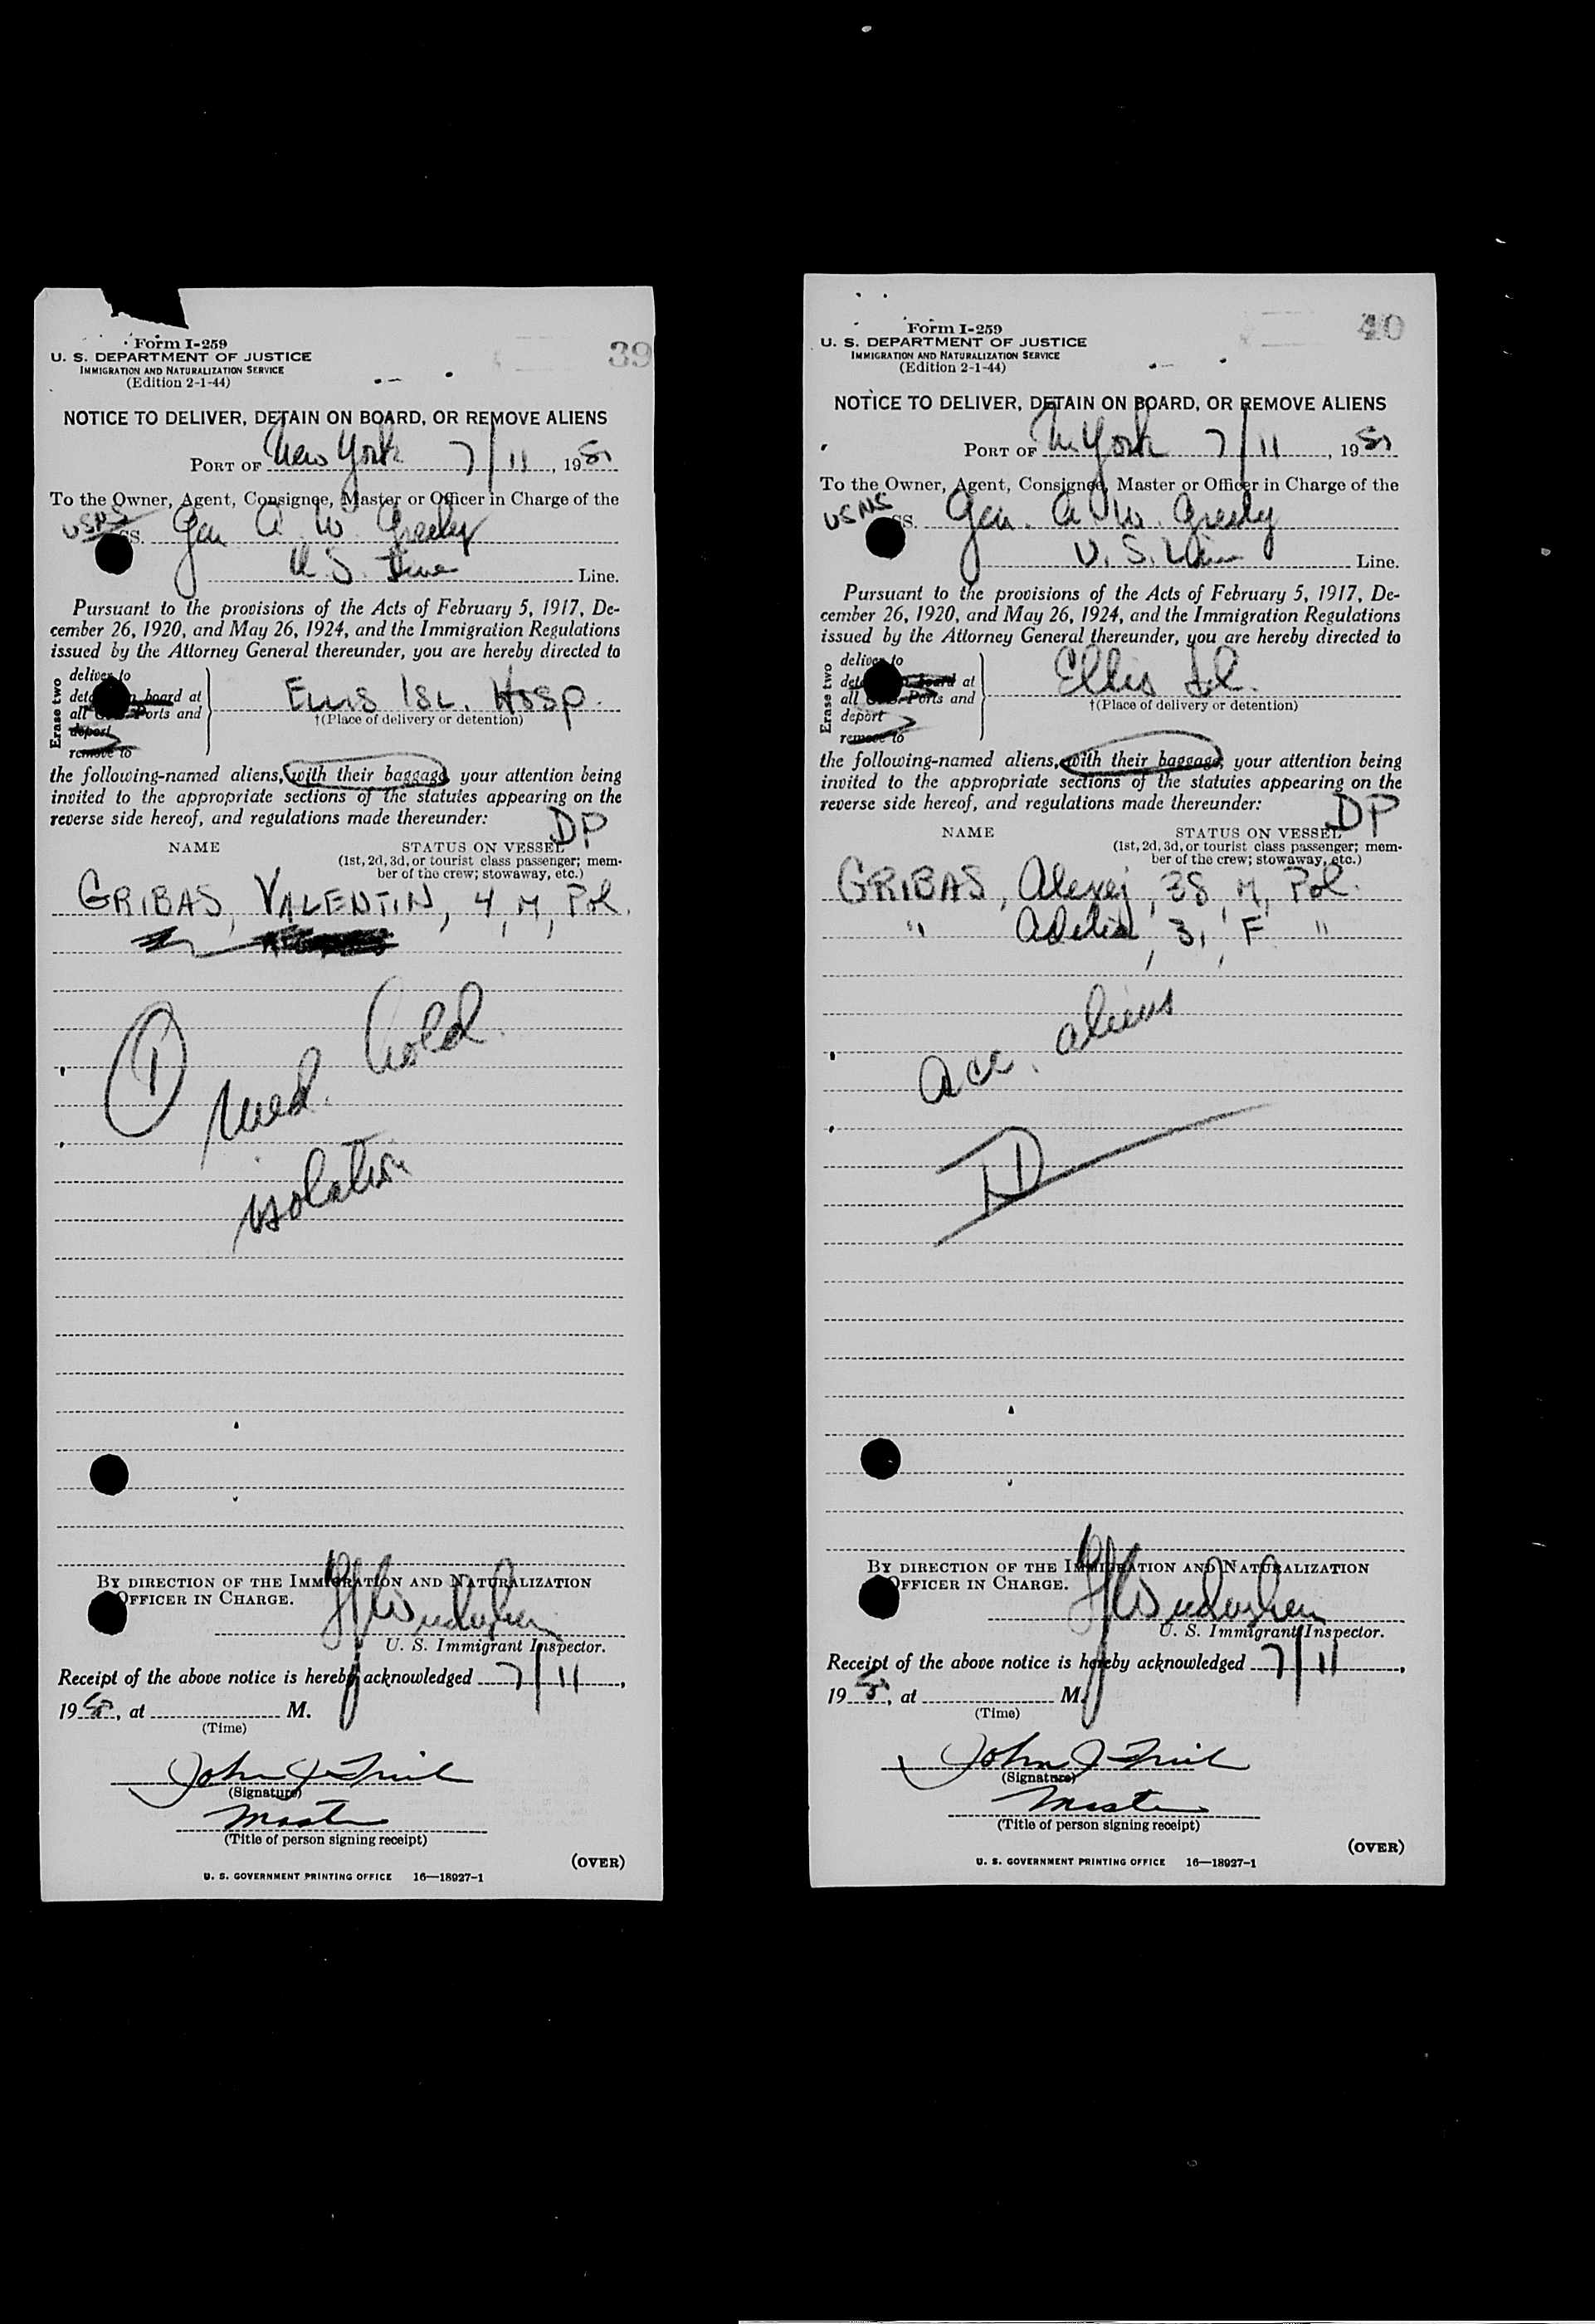 39
Form I-259
U. S. DEPARTMENT OF JUSTICE
IMMIGRATION AND NATURALIZATION SERVICE
(Edition 2-1-44)
NOTICE TO DELIVER, DETAIN ON BOARD, OR REMOVE ALIENS
PORT OF New York 7/11, 1951
To the Owner, Agent, Consignee, Master or Officer in Charge of the
USNS SS. Gen A. W. Greely
U. S. Line Line.
Pursuant to the provisions of the Acts of February 5, 1917, De-
cember 26, 1920, and May 26, 1924, and the Immigration Regulations
issued by the Attorney General thereunder, you are hereby directed to
Erase two
deliver to
board at
all Ports and
deport
remove to
Ellis Isl. Hosp.
†(Place of delivery or detention)
the following-named aliens, with their baggage, your attention being
invited to the appropriate sections of the statutes appearing on the
reverse side hereof, and regulations made thereunder:
DP
NAME STATUS ON VESSEL
(1st, 2d, 3d, or tourist class passenger; mem-
ber of the crew; stowaway, etc.)
GRIBAS, VALENTIN, 4, M, Pol.
1 Med. hold.
isolation
BY DIRECTION OF THE IMMIGRATION AND NATURALIZATION
OFFICER IN CHARGE.
U. S. Immigrant Inspector.
Receipt of the above notice is hereby acknowledged 7/11,
1951, at M.
(Time)
John J
(Signature)
Master
(Title of person signing receipt)
(OVER)
U. S. GOVERNMENT PRINTING OFFICE 16—18927-1
40
Form I-259
U. S. DEPARTMENT OF JUSTICE
IMMIGRATION AND NATURALIZATION SERVICE
(Edition 2-1-44)
NOTICE TO DELIVER, DETAIN ON BOARD, OR REMOVE ALIENS
PORT OF N. York 7/11, 1951
To the Owner, Agent, Consignee, Master or Officer in Charge of the
USNS SS. Gen. A. W. Greely
U. S. Line Line.
Pursuant to the provisions of the Acts of February 5, 1917, De-
cember 26, 1920, and May 26, 1924, and the Immigration Regulations
issued by the Attorney General thereunder, you are hereby directed to
Erase two
deliver to
board at
all Ports and
deport
remove to
Ellis Isl.
†(Place of delivery or detention)
the following-named aliens, with their baggage, your attention being
invited to the appropriate sections of the statutes appearing on the
reverse side hereof, and regulations made thereunder:
DP
NAME STATUS ON VESSEL
(1st, 2d, 3d, or tourist class passenger; mem-
ber of the crew; stowaway, etc.)
GRIBAS, Alexej, 38, M, Pol.
" Adelia, 3, F "
Acc. aliens
BY DIRECTION OF THE IMMIGRATION AND NATURALIZATION
OFFICER IN CHARGE.
U. S. Immigrant Inspector.
Receipt of the above notice is hereby acknowledged 7/11,
1951, at M.
(Time)
John J
(Signature)
Master
(Title of person signing receipt)
(OVER)
U. S. GOVERNMENT PRINTING OFFICE 16—18927-1